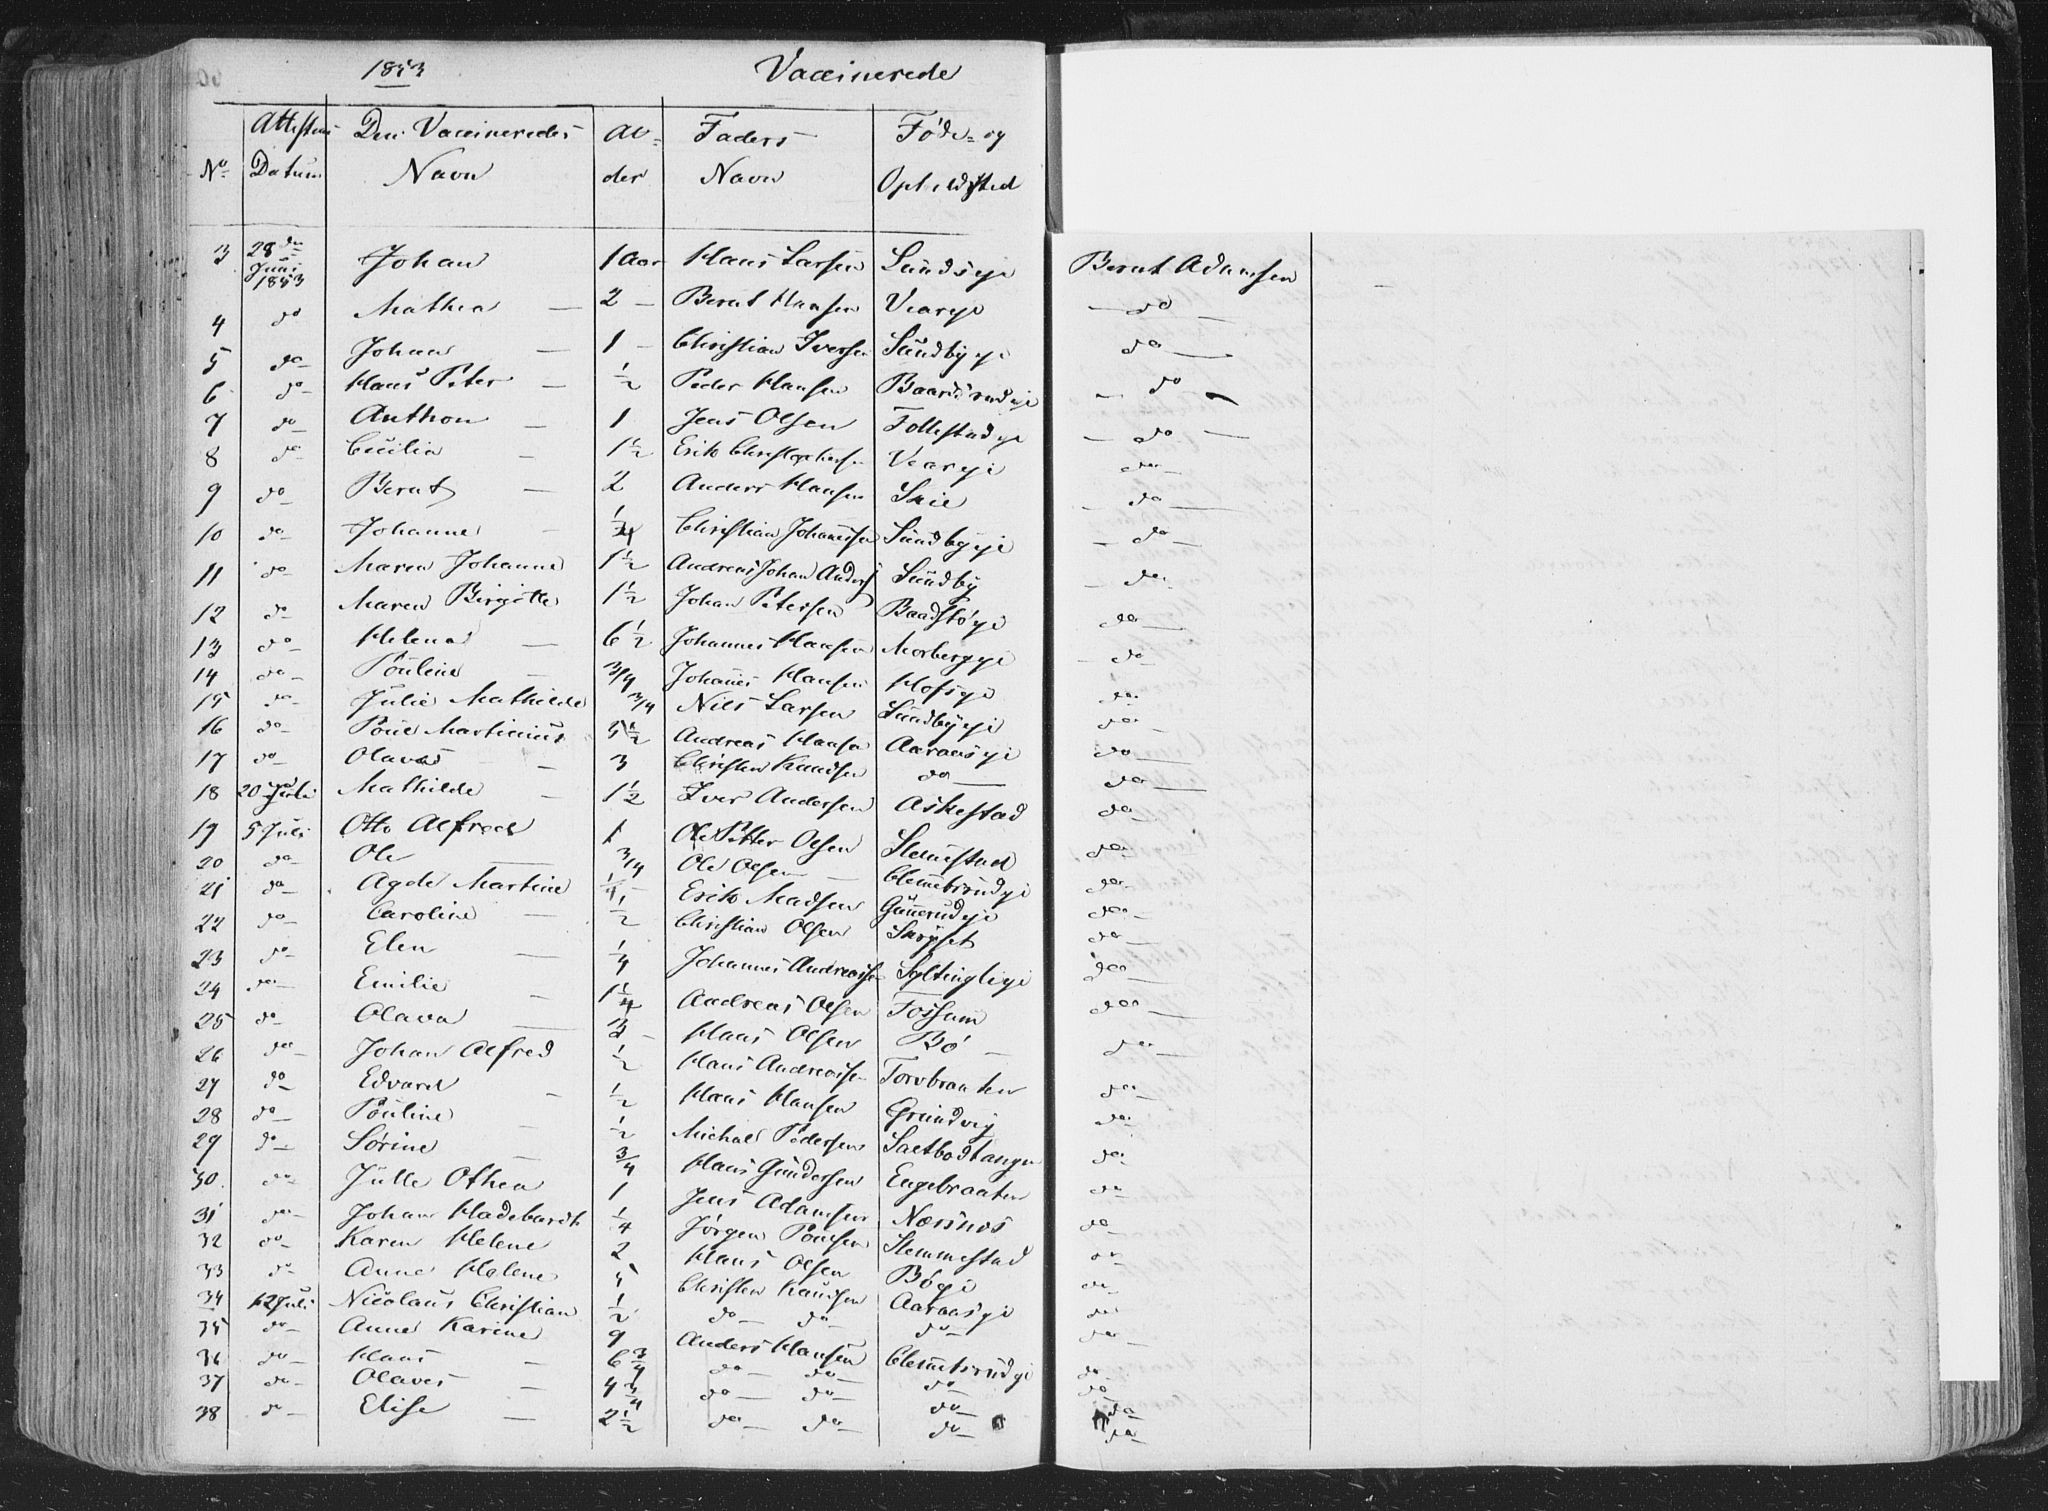 1853 Vaccinerede
No Attestens Datum Den Vaccineredes Navn Al-der Faders Navn Føde- og Opholdsted
3 28de Juni 1853 Johan 1 Aar Hans Larsen Lundseje Bernt Adamsen
4 do Mathea — 2 — Bernt Hansen Veareje — do —
5 do Johan — 1 — Christian Iversen Sundbyeje do —
6 do Hans Peter — ½ Peder Hansen Baardsrudeje — do —
7 do Anthon — 1 Jens Olsen Follestadeje — do —
8 do Cecilia — 1½ Erik Christophersen Veareje do —
9 do Bernt — 2 Anders Hansen — do —
10 do Johanne — Christian Johannesen Sundbyeje — do —
11 do Maren Johanne 1½ Andreas Johan Anders Sundby — do —
12 do Maren Birgitte 1½ Johan Petersen Baadstøeje do —
13 do Helena — 6½ Johannes Hansen Morbergeje — do
14 do Pouline — 3/4 Johannes Hansen Hofseje do
15 do Julie Mathilde 3/4 Nils Larsen Sundbyeje do —
16 do Poul Martinius 5½ Andreas Hansen Aaraaseje do —
17 do Olaves — 3 Christen Knudsen do — do —
18 20 Juli Mathilde — 1½ Iver Andersen Askestad do
19 5 Juli Otto Alfred 1 Ole Petter Olsen Slemestad do
20 do Ole — 3/4 Ole Olsen — Clemetsrudeje do
21 do Agde Martine Erik Madsen Gunnerudeje do
22 do Caroline — ½ Christian Olsen Skryset do —
23 do Elen — ¼ Johannes Andreassen Syltingli eje do —
24 do Emilie — 1¼ Andreas Olsen Fossum do —
25 do Olava — Hans Olsen Bø — do —
26 do Johan Alfred ½ Hans Andreassen Torvbraaten do
27 do Edvard — ½ Hans Hansen Grundvig do
28 do Pouline — ½ Michael Pedersen Saltbodtangen do
29 do Sørine — 3/4 Hans Gundersen Engebraaten do
30 do Julle Othea 1 Jens Adamsen Næsnes do
31 do Johan Hadebardt ¼ Jørgen Poulsen Slemmestad do
32 do Karen Helene 2 Hans Olsen Bøeje do
33 do Anne Helene Christen Knudsen Aaraaseje do
34 12 Juli Nicolaus Christian ½ do — do do do
35 do Anne Karine 9 Anders Hansen Clemetsrudeje do
36 do Hans — 6 3/4 do — do — do do
37 do Olaves — 4 3/4 do — do — do do
38 do Elise — 2½ do — do — do do